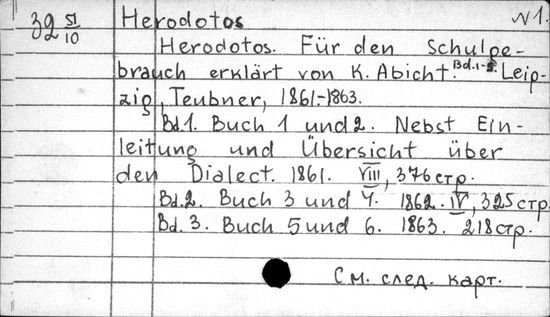 32 51/10 Herodotos N 1.
Herodotos. Für den Schulge-
brauch erklärt von K. Abicht. Bd. 1-5. Leip-
zig, Teubner, 1861-1863.
Bd. 1. Buch 1 und 2. Nebst Ein-
leitung und Übersicht über
den Dialect. 1861. VIII, 376 стр.
Bd. 2. Buch 3 und 4. 1862. IV, 325 стр.
Bd. 3. Buch 5 und 6. 1863. 218 стр.
См. след. карт.